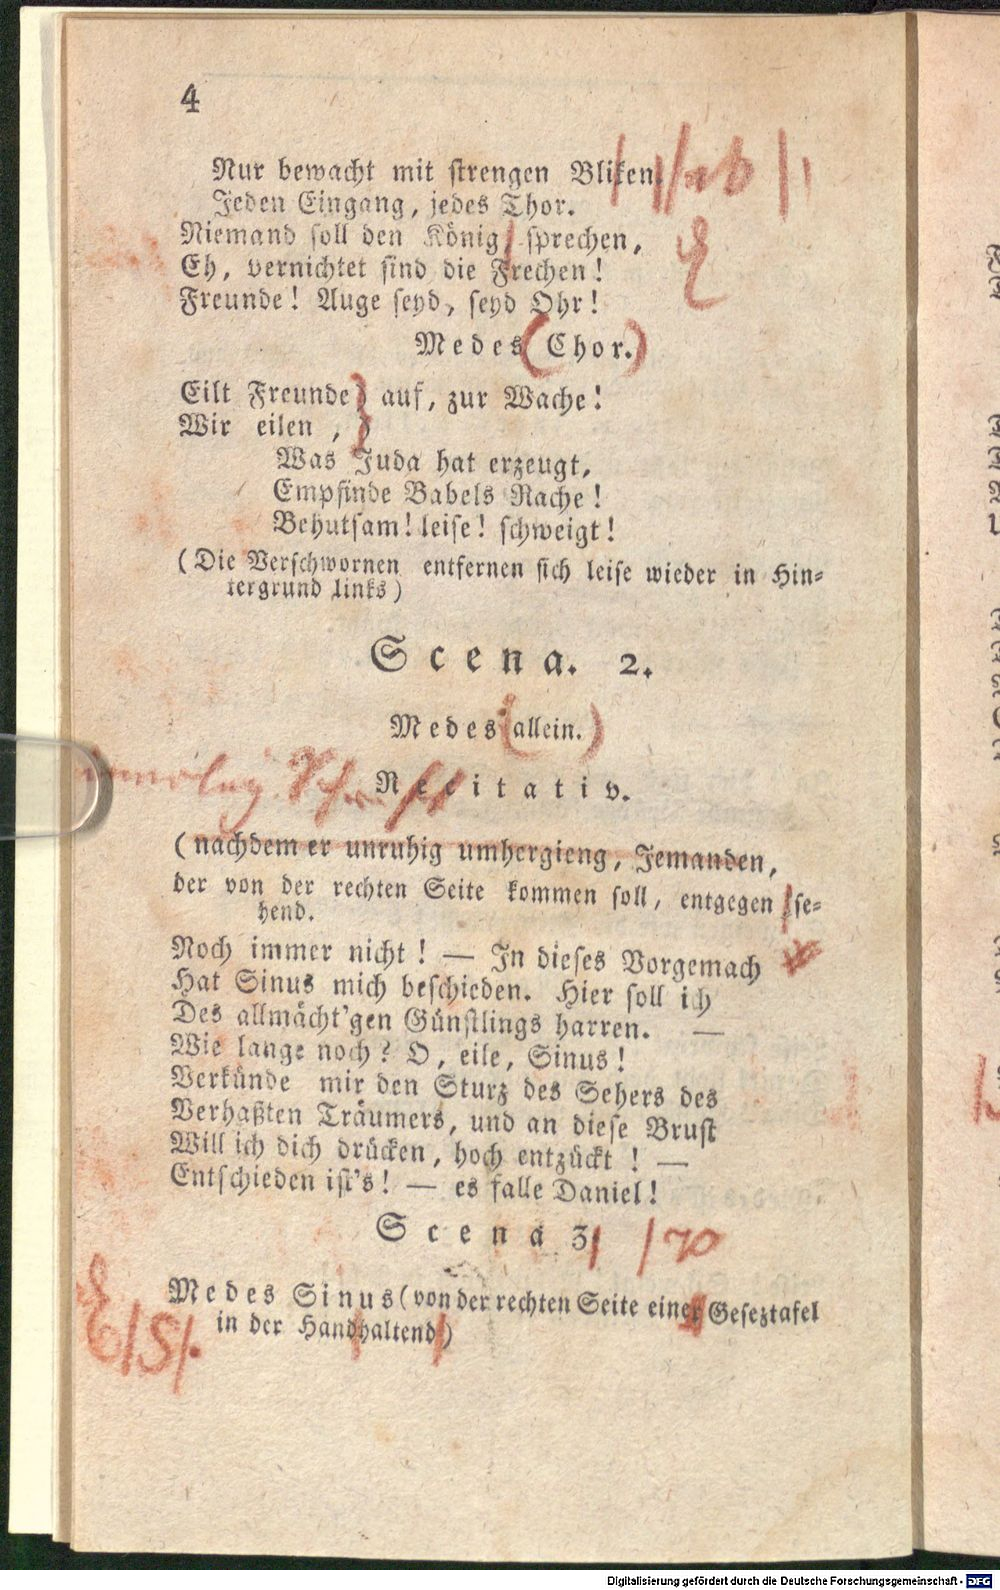 4
Nur bewacht mit strengen Bliken
Jeden Eingang, jedes Thor.
Niemand soll den König, sprechen,
Eh, vernichtet sind die Frechen!
Freunde! Auge seyd, seyd Ohr!
Medes (Chor.)
Eilt Freunde) auf, zur Wache!
Wir eilen , )
Was Juda hat erzeugt,
Empfinde Babels Rache!
Behutsam! leise! schweigt!
(Die Verschwornen entfernen sich leise wieder in Hin-
tergrund links)
Scena. 2.
Medes (allein.)
Recitativ.
(nachdem er unruhig umhergieng, Jemanden,
der von der rechten Seite kommen soll, entgegen se-
hend.
Noch immer nicht! — In dieses Vorgemach
Hat Sinus mich beschieden. Hier soll ich
Des allmächt'gen Günstlings harren. —
Wie lange noch? O, eile, Sinus!
Verkünde mir den Sturz des Sehers des
Verhaßten Träumers, und an diese Brust
Will ich dich drücken, hoch entzückt! —
Entschieden ist's! — es falle Daniel!
Scena 3
Medes Sinus (von der rechten Seite einer Geseztafel
in der Handhaltend)
Digitalisierung gefördert durch die Deutsche Forschungsgemeinschaft - DFG